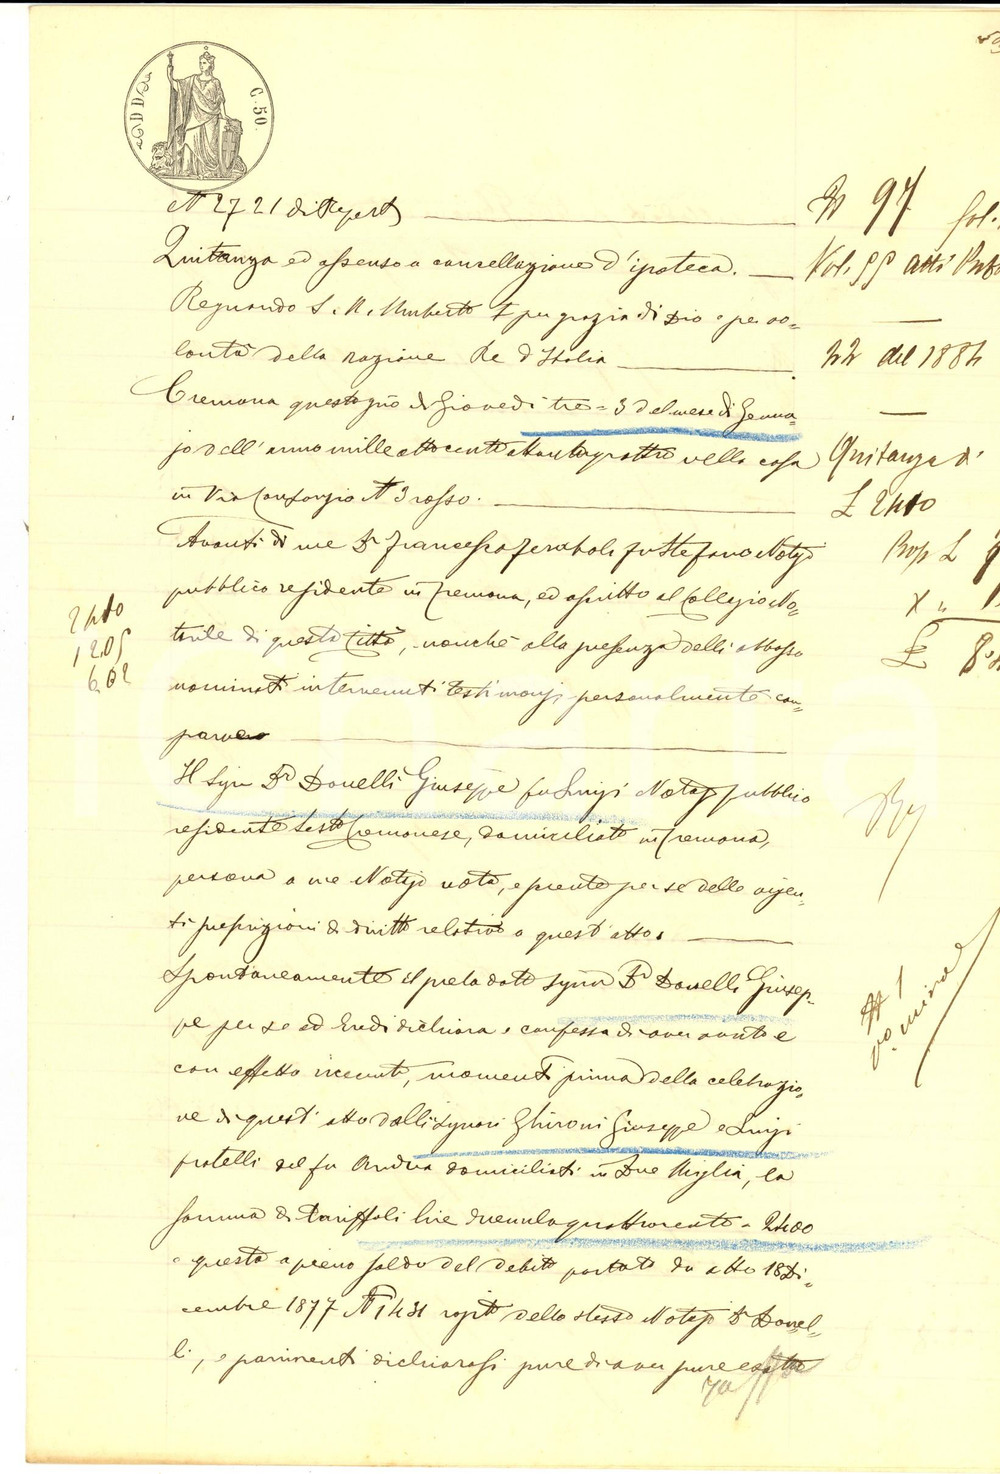 C. 50
N 2721 di Repert
Quitanza ed assenso a cancellazione d'ipoteca.
Regnando S. M. Umberto I per grazia di Dio e per vo=
lontà della nazione Re d'Italia
Cremona questo gno di Giovedì tre = 3 del mese di Genna=
jo dell'anno mille ottocento ottantaquattro nella casa
in Via Consorzio N 3 rosso.
Avanti di me Dr Francesco fu Stefano Notajo
pubblico residente in Cremona, ed ascritto al Collegio No=
tarile di questa Città, nonchè alla presenza delli abbasso
nominati intervenuti testimonj personalmente com=
parve
Il Sigr Dr Donelli Giuseppe fu Luigi Notajo pubblico
residente Sesto Cremonese, domiciliato in Cremona,
persona a me Notajo nota, e per se delle vigen=
ti prescrizioni di diritto relative a quest'atto.
Spontaneamente il prelodato Signor Dr Donelli Giusep=
pe per se ed Eredi dichiara e confessa di aver avuto e
con effetto ricevuto, momenti prima della celebrazio=
ne di quest'atto dalli Signori Ghironi Giuseppe e Luigi
fratelli del fu Andrea domiciliati in Due Miglia, la
somma di lire duemilaquattrocento = 2400
e questa a pieno saldo del debito portato da atto 18 Di=
cembre 1877 N 1431 rogito dello stesso Notajo Dr Donel=
li, e parimenti dichiarasi pure di aver pure esatto
N 97 fol.
Vol. 99 atti
22 del 1884
Quitanza di
£ 2400
£
2400
1205
602